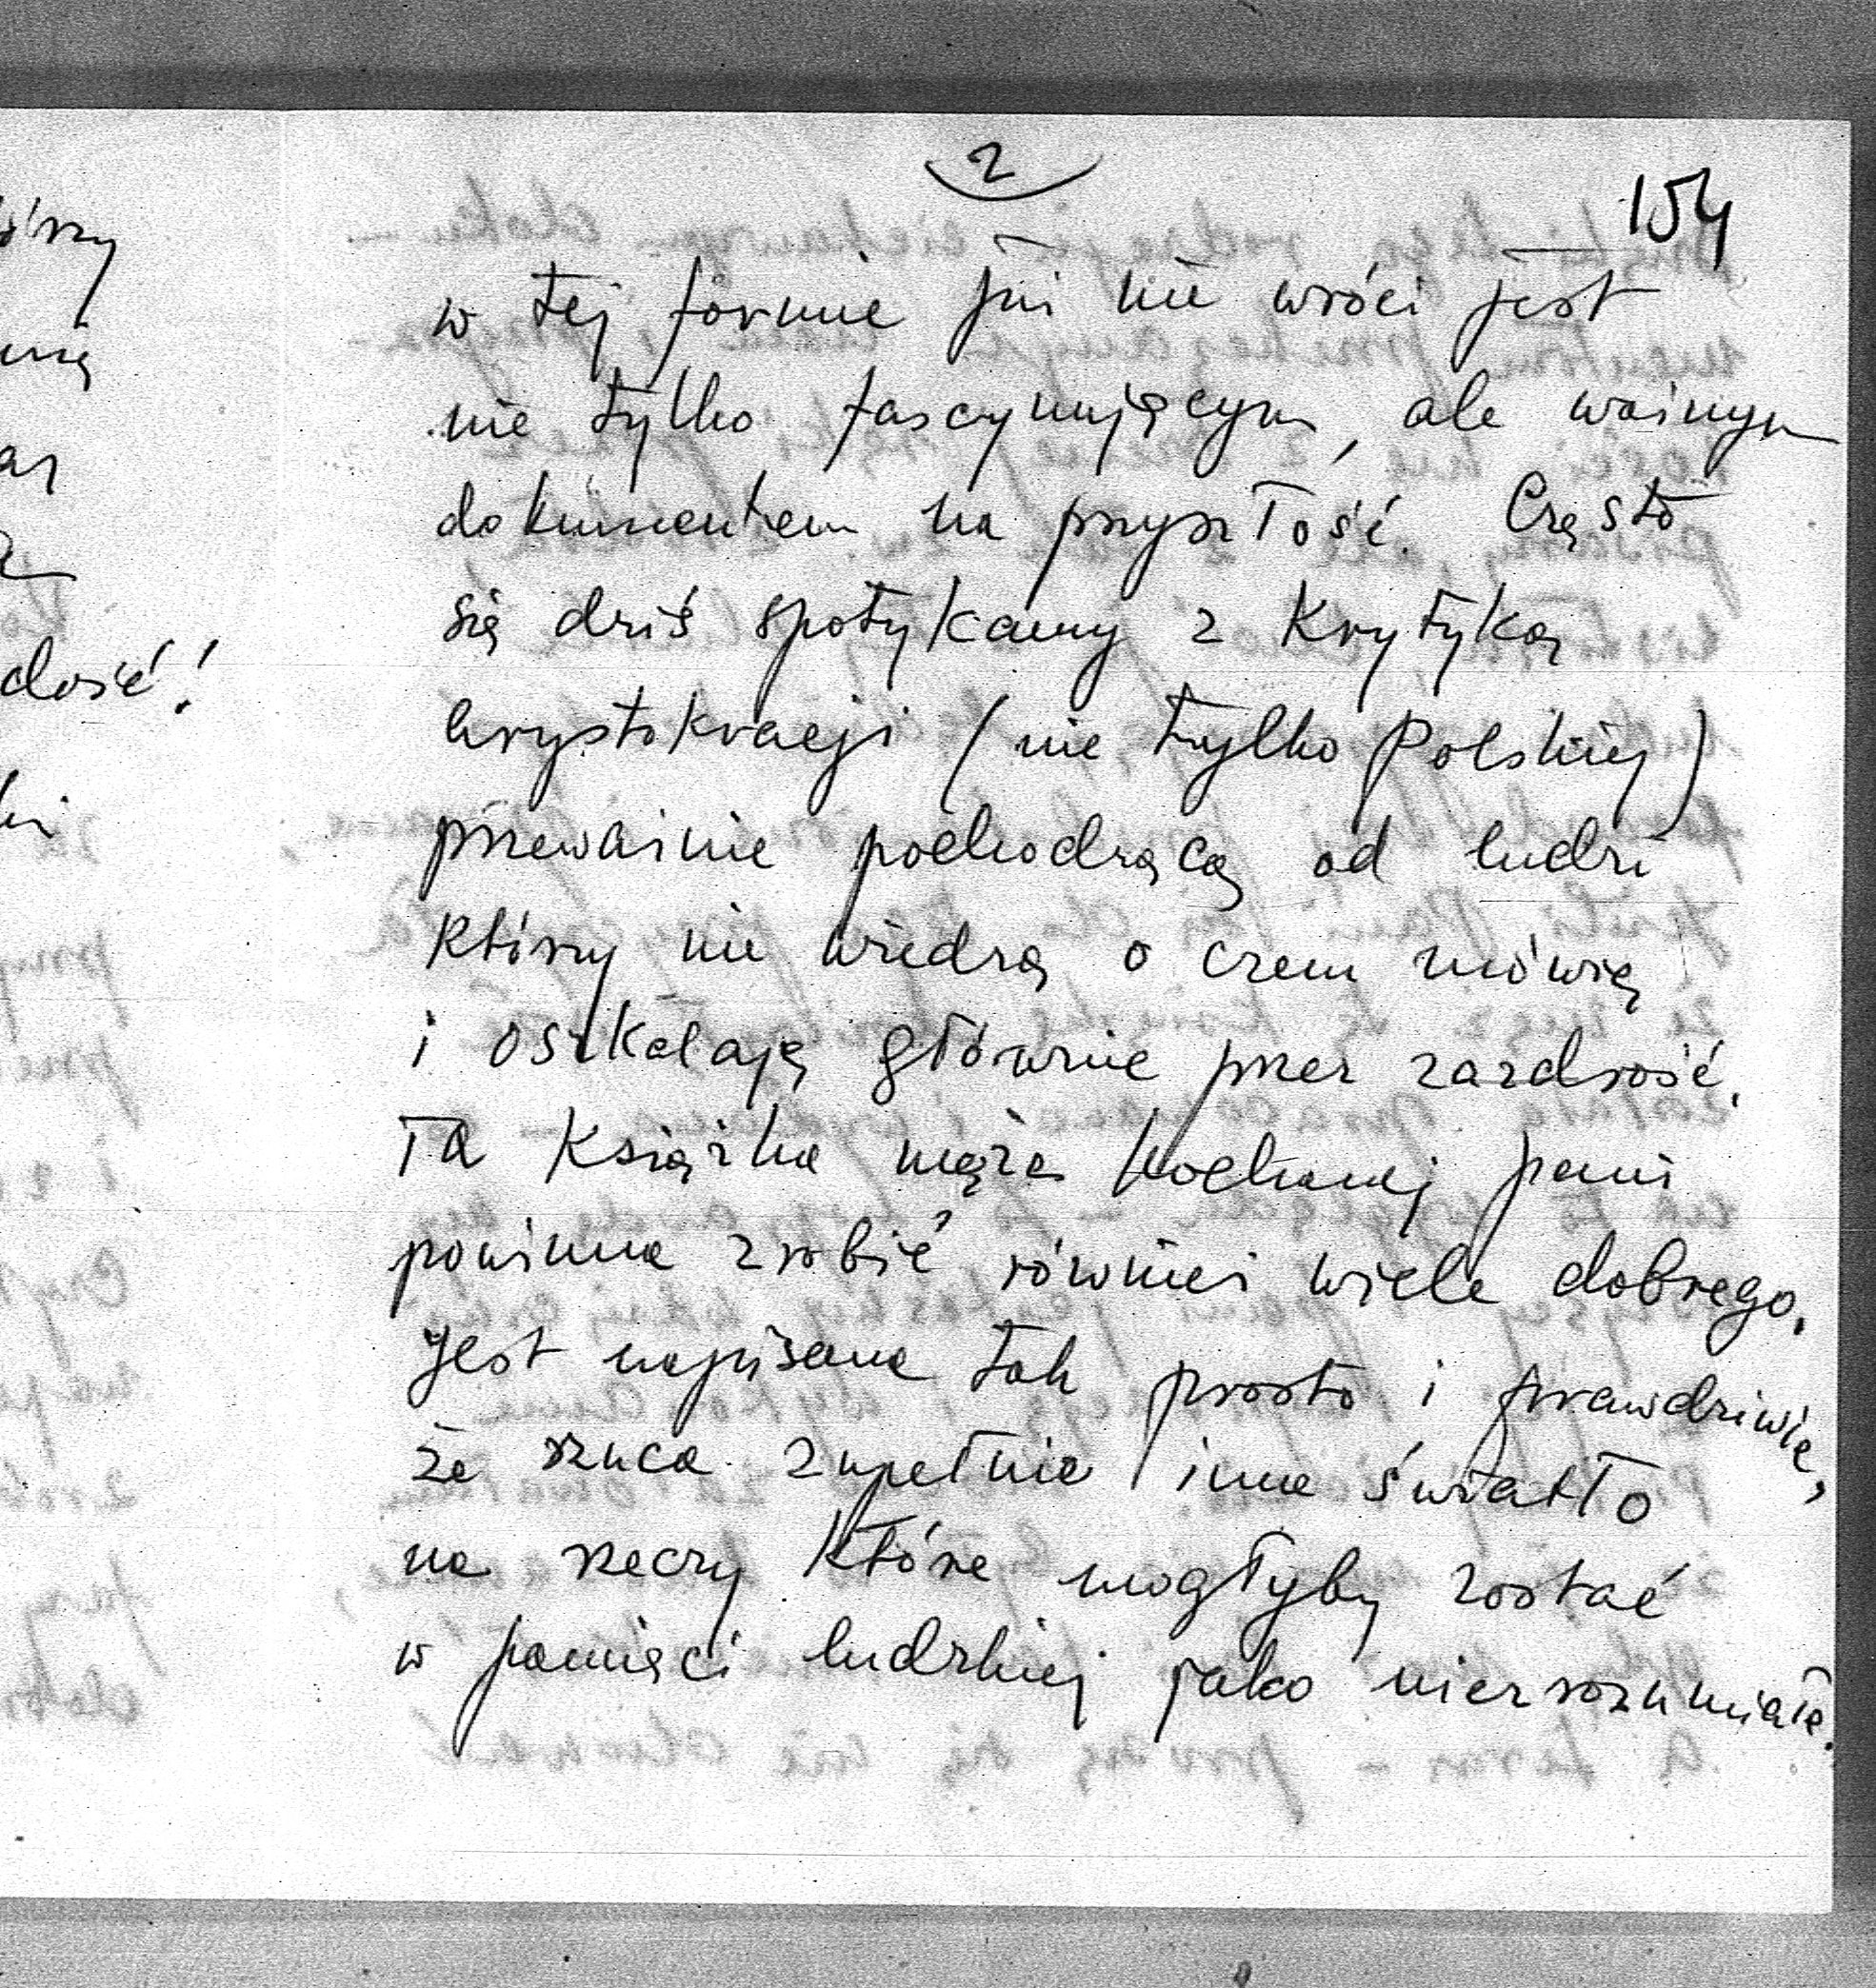 2
154
w tej formie już nie wróci jest
nie tylko fascynującym, ale ważnym
dokumentem na przyszłość. Często
się dziś spotykamy z krytyką
Arystokracji (nie tylko Polskiej)
przeważnie pochodzącą od ludzi
którzy nie wiedzą o czem mówią
i oskalają głównie przez zazdrość.
Ta książka męża kochanej pani
powinna zrobić również wiele dobrego.
Jest napisana tak prosto i prawdziwie,
że rzuca zupełnie inne światło
na rzeczy które mogłyby zostać
w pamięci ludzkiej jako niezrozumiałe.
dość!